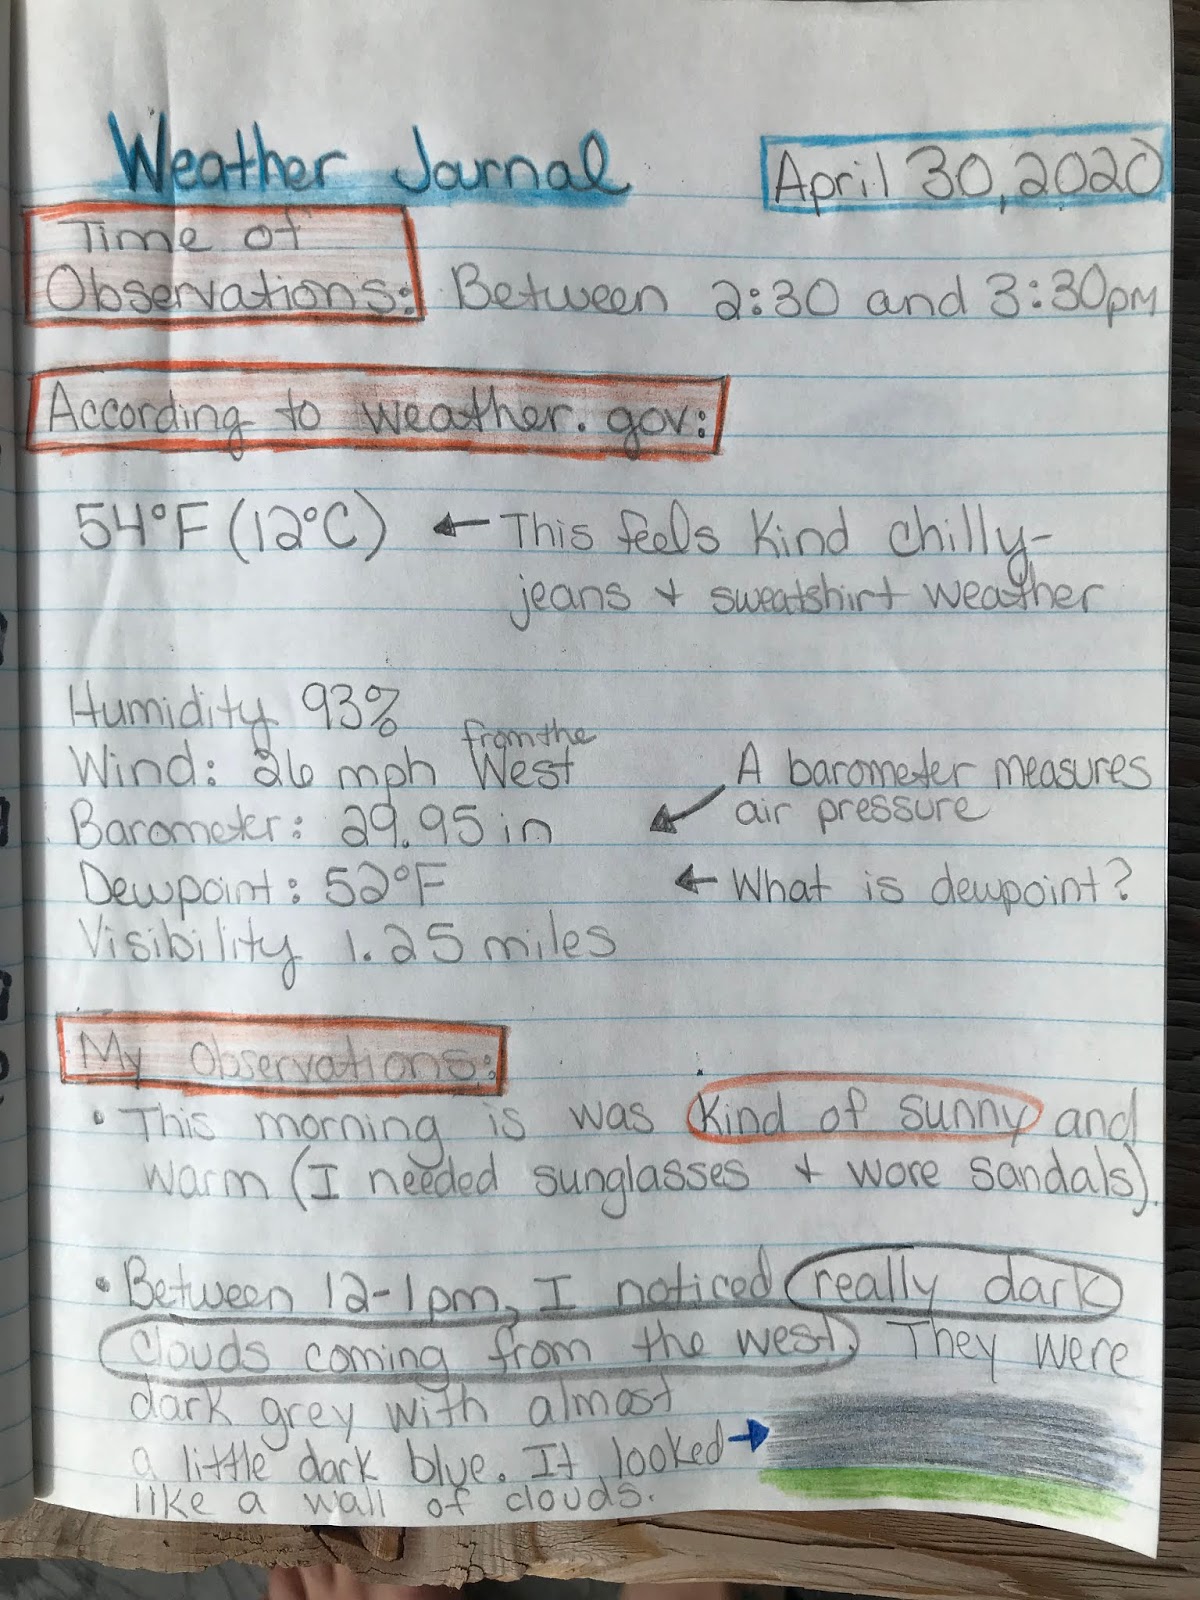 Weather Journal
April 30, 2020
Time of
Observations: Between 2:30 and 3:30pm
According to weather.gov:
54°F (12°C) ← This feels kind chilly-
jeans + sweatshirt weather
Humidity 93%
Wind: 26 mph from the West
Barometer: 29.95 in
A barometer measures
air pressure
Dewpoint: 52°F ← What is dewpoint?
Visibility 1.25 miles
My Observations:
• This morning is was kind of sunny and
warm (I needed sunglasses + wore sandals).
• Between 12-1pm, I noticed really dark
clouds coming from the west. They were
dark grey with almost
a little dark blue. It looked →
like a wall of clouds.